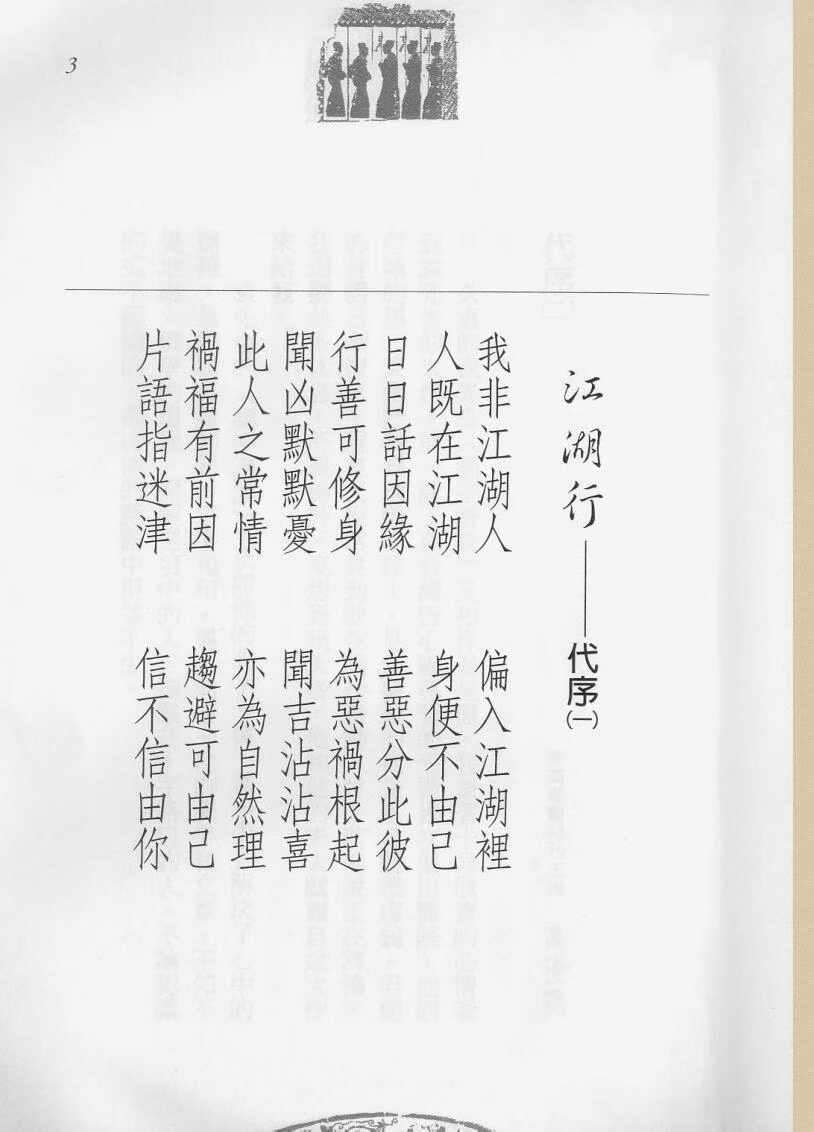 3
江湖行——代序(一)
我非江湖人 偏入江湖裡
人既在江湖 身便不由己
日日話因緣 善惡分此彼
行善可修身 為惡禍根起
聞凶默默憂 聞吉沾沾喜
此人之常情 亦為自然理
禍福有前因 趨避可由己
片語指迷津 信不信由你